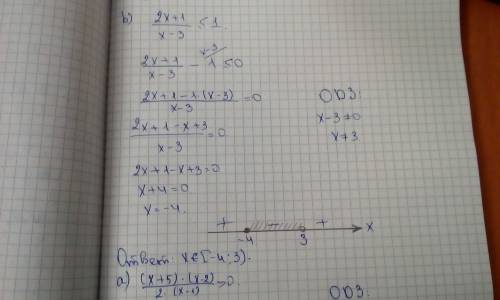 b) (2x+1)/(x-3) ≤ 1.
(2x+1)/(x-3) - 1 ^(x-3) ≤ 0
(2x+1-1·(x-3))/(x-3) = 0
ОДЗ:
x-3≠0
x≠3.
(2x+1-x+3)/(x-3) = 0
2x+1-x+3=0
x+4=0
x=-4.
+ - + x
-4 3
Ответ: x∈[-4; 3).
a) ((x+5)·(x-2))/(2·(x-1)) >0.
ОДЗ: